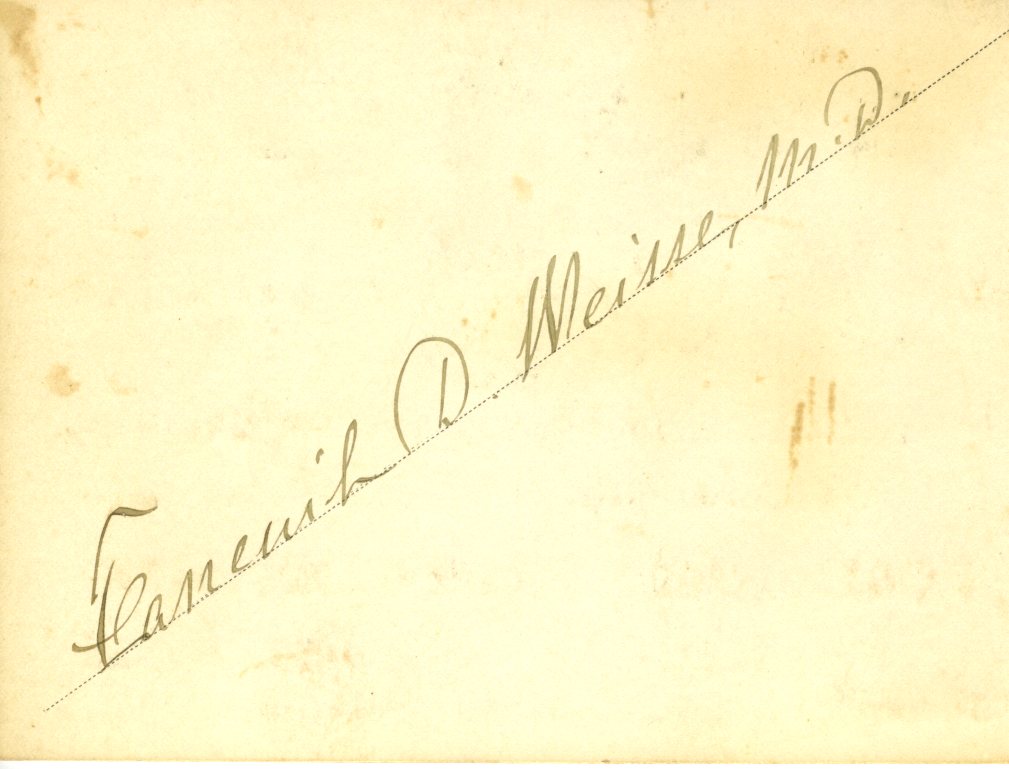 Faneuil D. Weisse, M.D.